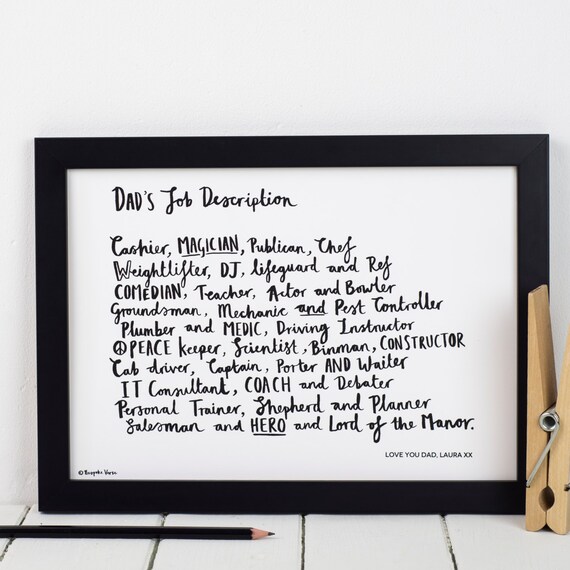 DAD'S Job Description
Cashier, MAGICIAN, Publican, Chef
Weightlifter, DJ, lifeguard and Ref
COMEDIAN, Teacher, Actor and Bowler
Groundsman, Mechanic and Pest Controller
Plumber and MEDIC, Driving Instructor
☮PEACE keeper, Scientist, Binman, CONSTRUCTOR
Cab driver, Captain, Porter AND Waiter
IT Consultant, COACH and Debater
Personal Trainer, Shepherd and Planner
Salesman and HERO and Lord of the Manor.
LOVE YOU DAD, LAURA XX
© Bespoke Verse